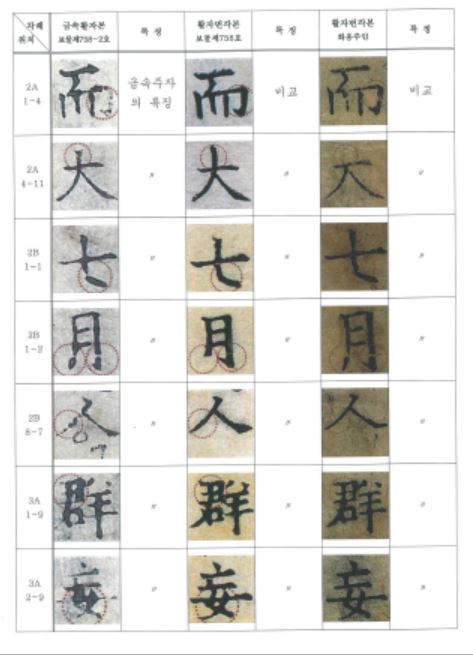 차례
위치
금속활자본
보물제758-2호
특 징
활자번각본
보물제758호
특 징
활자번각본
최용주인
특 징
2A
1-4
而
금속주자
의 특징
而
비교
而
비교
2A
4-11
大
〃
大
〃
大
〃
2B
1-1
七
〃
七
〃
七
〃
2B
1-2
月
〃
月
〃
月
〃
2B
8-7
人
〃
人
〃
人
〃
3A
1-9
群
〃
群
〃
群
〃
3A
2-9
妄
〃
妄
〃
妄
〃